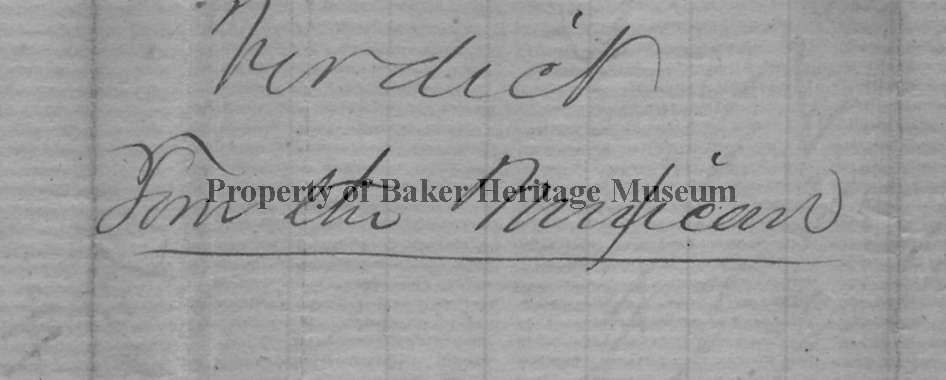 Verdict
Tom the Mexican
Property of Baker Heritage Museum